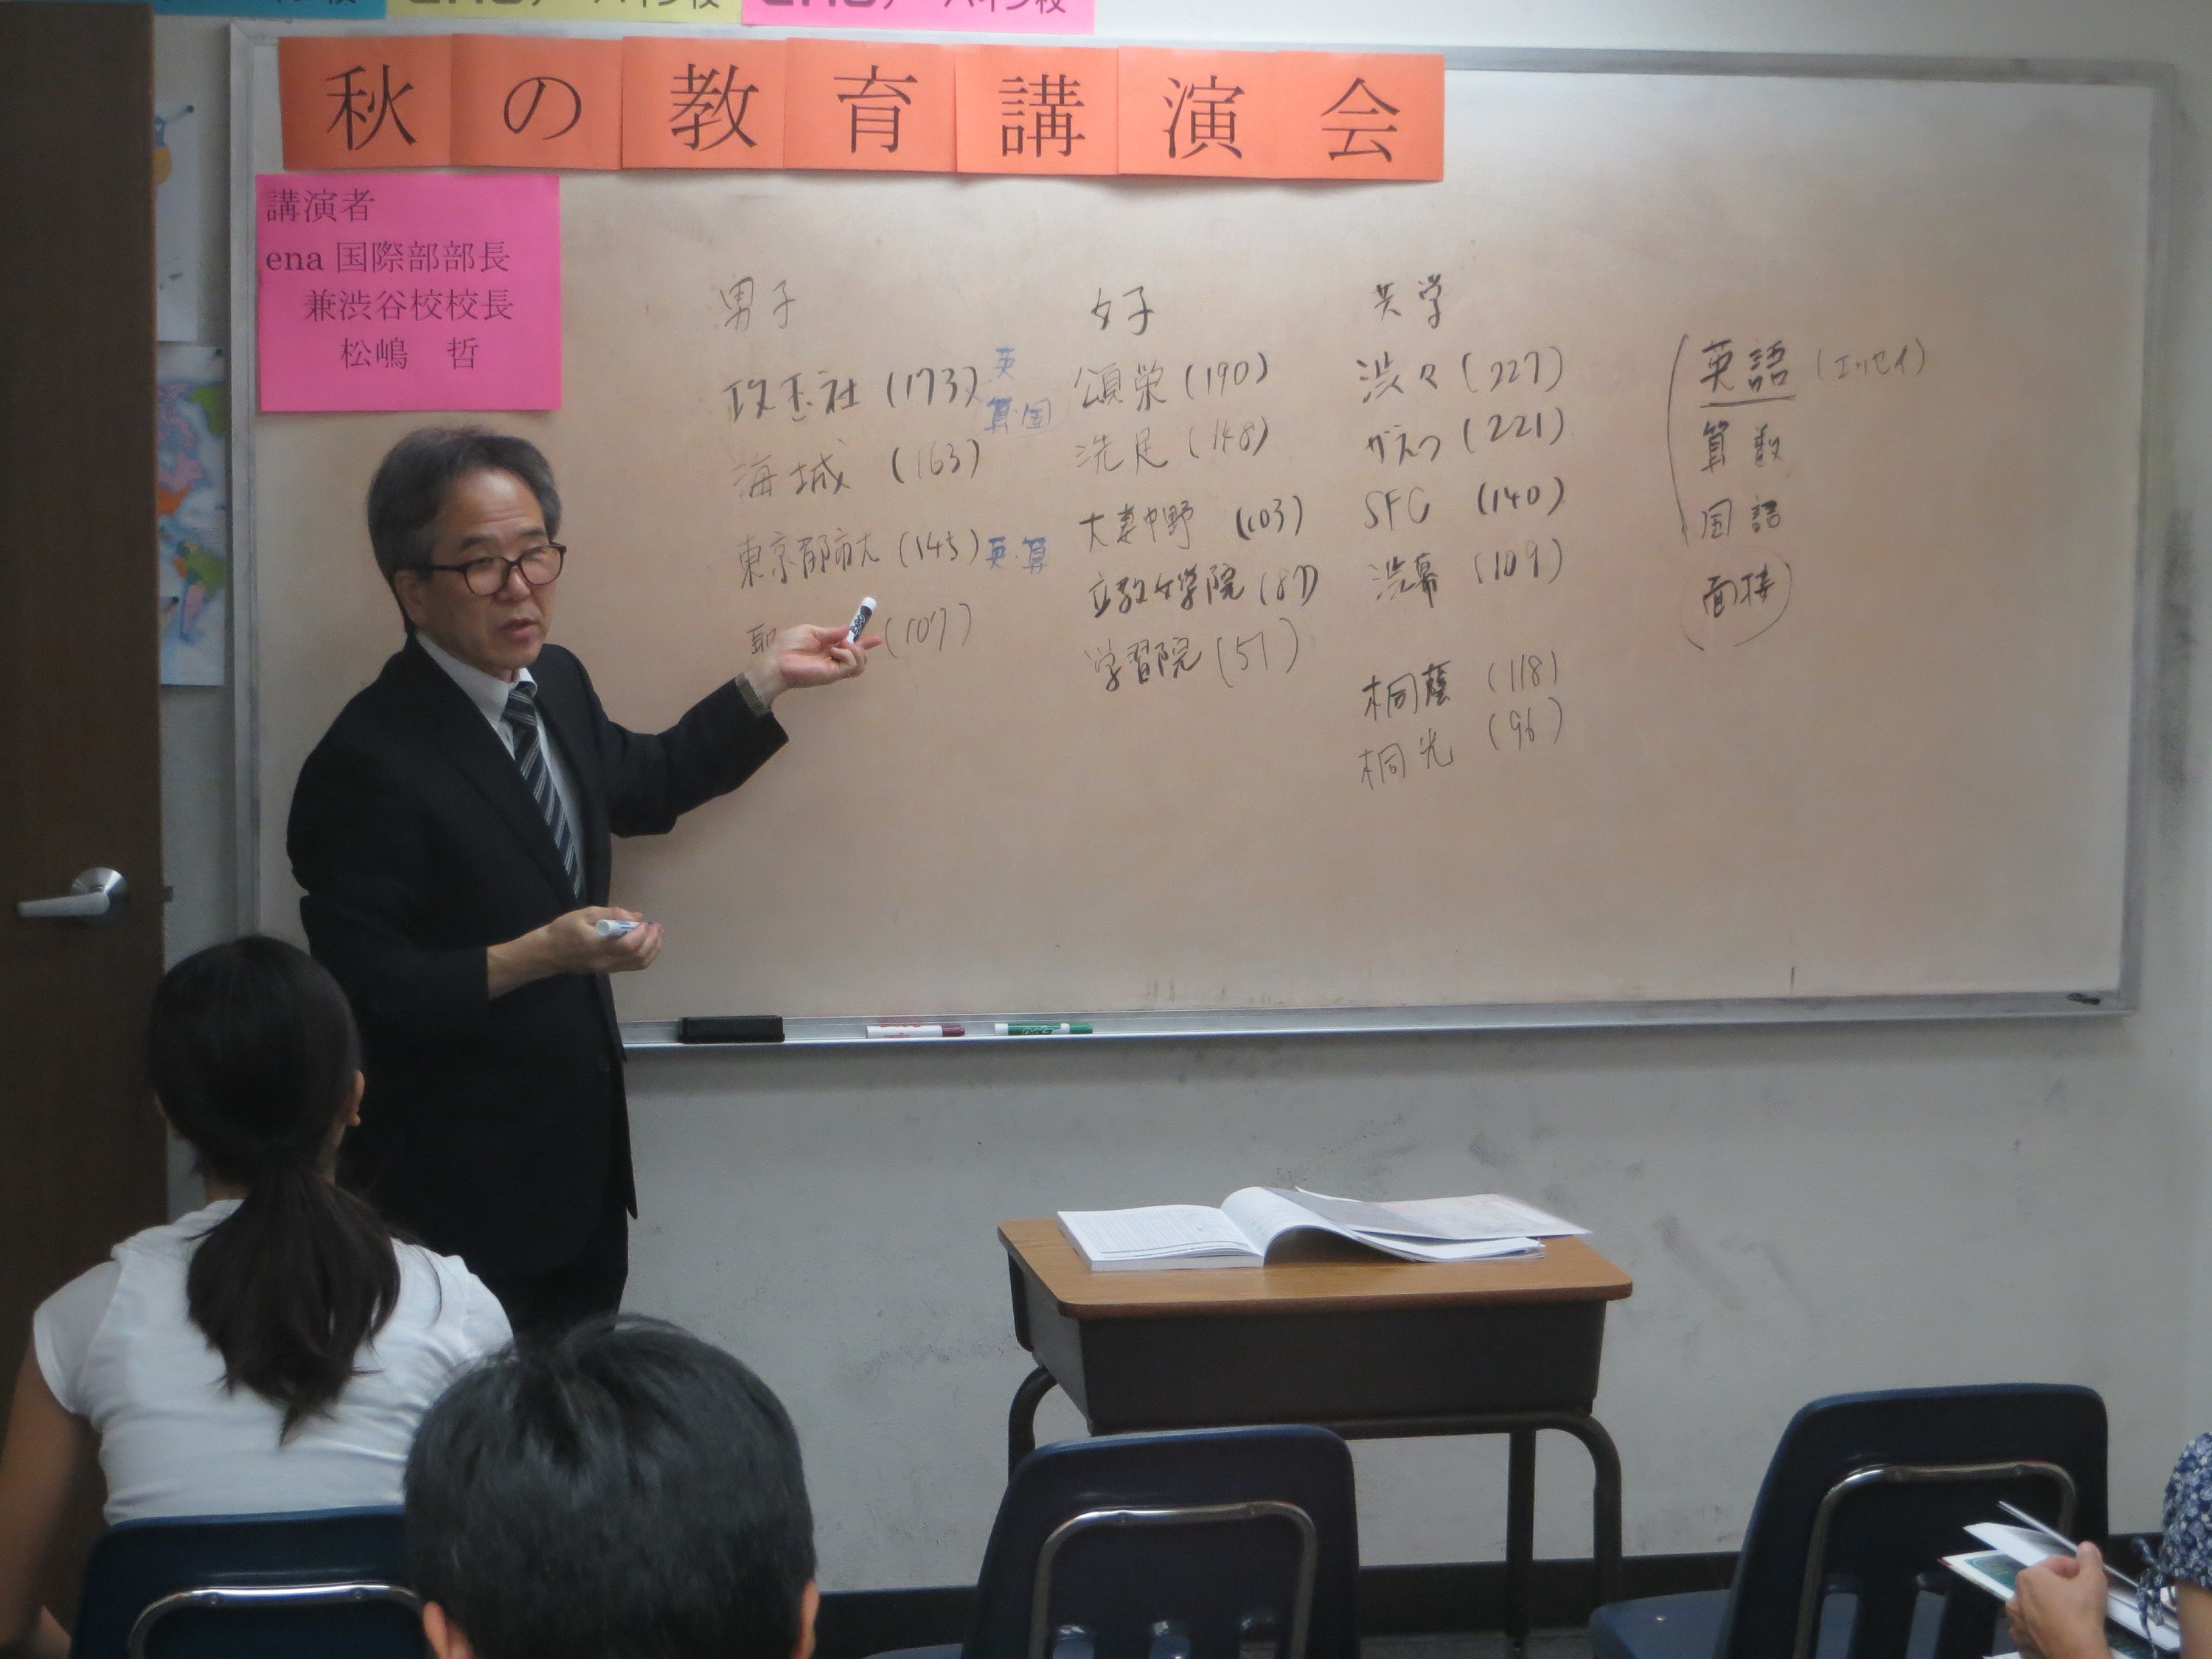 ena アーバイン校
ena アーバイン校
秋の教育講演会
講演者
ena 国際部部長
兼渋谷校校長
松嶋 哲
男子
攻玉社 (173) 英
算・国
海城 (163)
東京都市大 (145) 英・算
聖 (107)
女子
頌栄 (190)
洗足 (148)
大妻中野 (103)
立教女学院 (87)
学習院 (51)
共学
渋々 (227)
(221)
SFC (140)
渋幕 (109)
桐蔭 (118)
桐光 (96)
英語 (エッセイ)
算数
国語
面接